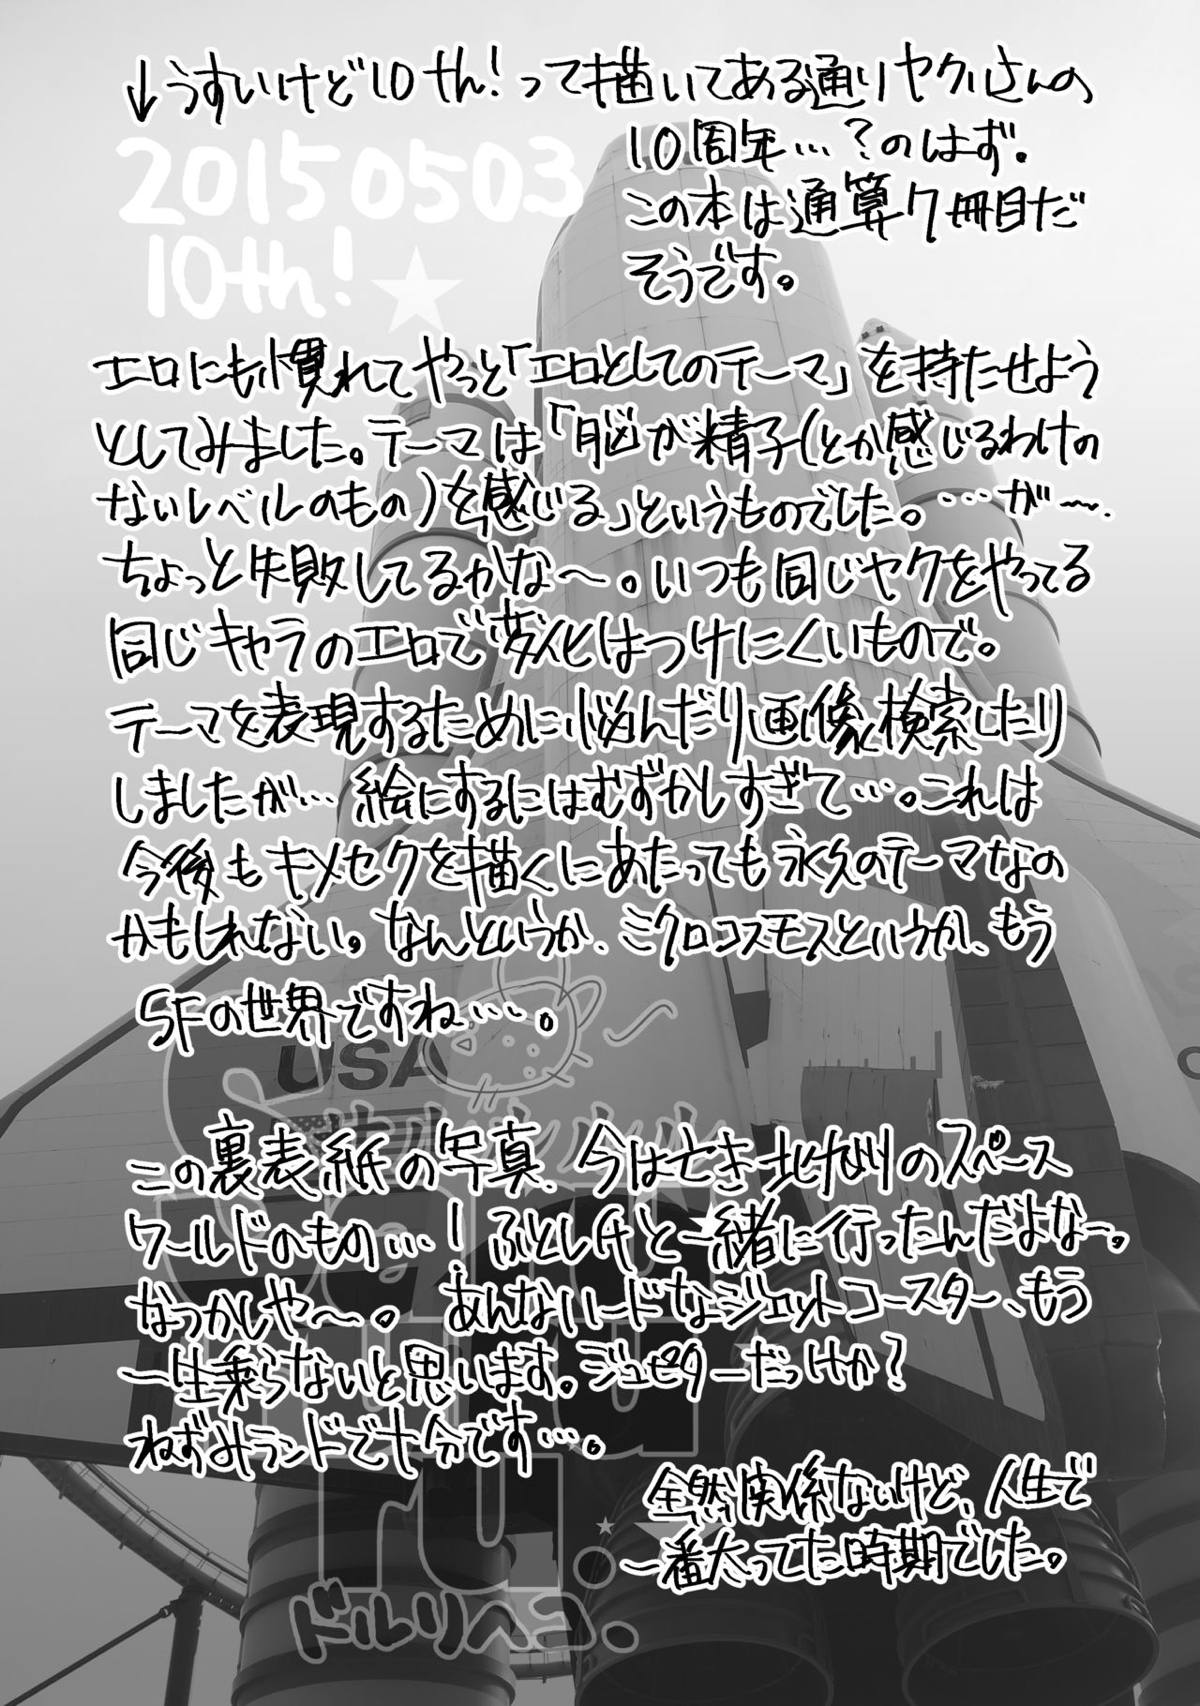 ↓うすいけど10th!って描いてある通りヤクルさんの
10周年…?のはず。
この本は通算7冊目だ
そうです。
20150503
10th!
エロにも慣れてやっと「エロとしてのテーマ」を持たせよう
としてみました。テーマは「脳が精子(とか感じるわけの
ないレベルのもの)を感じる」というものでした。…が〜、
ちょっと失敗してるかな〜。いつも同じヤクをやってる
同じキャラのエロで変化はつけにくいもので。
テーマを表現するために悩んだり画像検索したり
しましたが…絵にするにはむずかしすぎて…。これは
今後もキメセクを描くにあたっても永久のテーマなの
かもしれない。なんというか、ミクロコスモスというか、もう
SFの世界ですね…。
USA
この裏表紙の写真、今は亡き北九州のスペース
ワールドのもの…!ふとし氏と一緒に行ったんだよな〜。
なつかしや〜。あんなハードなジェットコースター、もう
一生乗らないと思います。ジュピターだっけか?
ねずみランドで十分です…。
全然関係ないけど、人生で
一番太ってた時期でした。
ru.
ドルリヘコ.